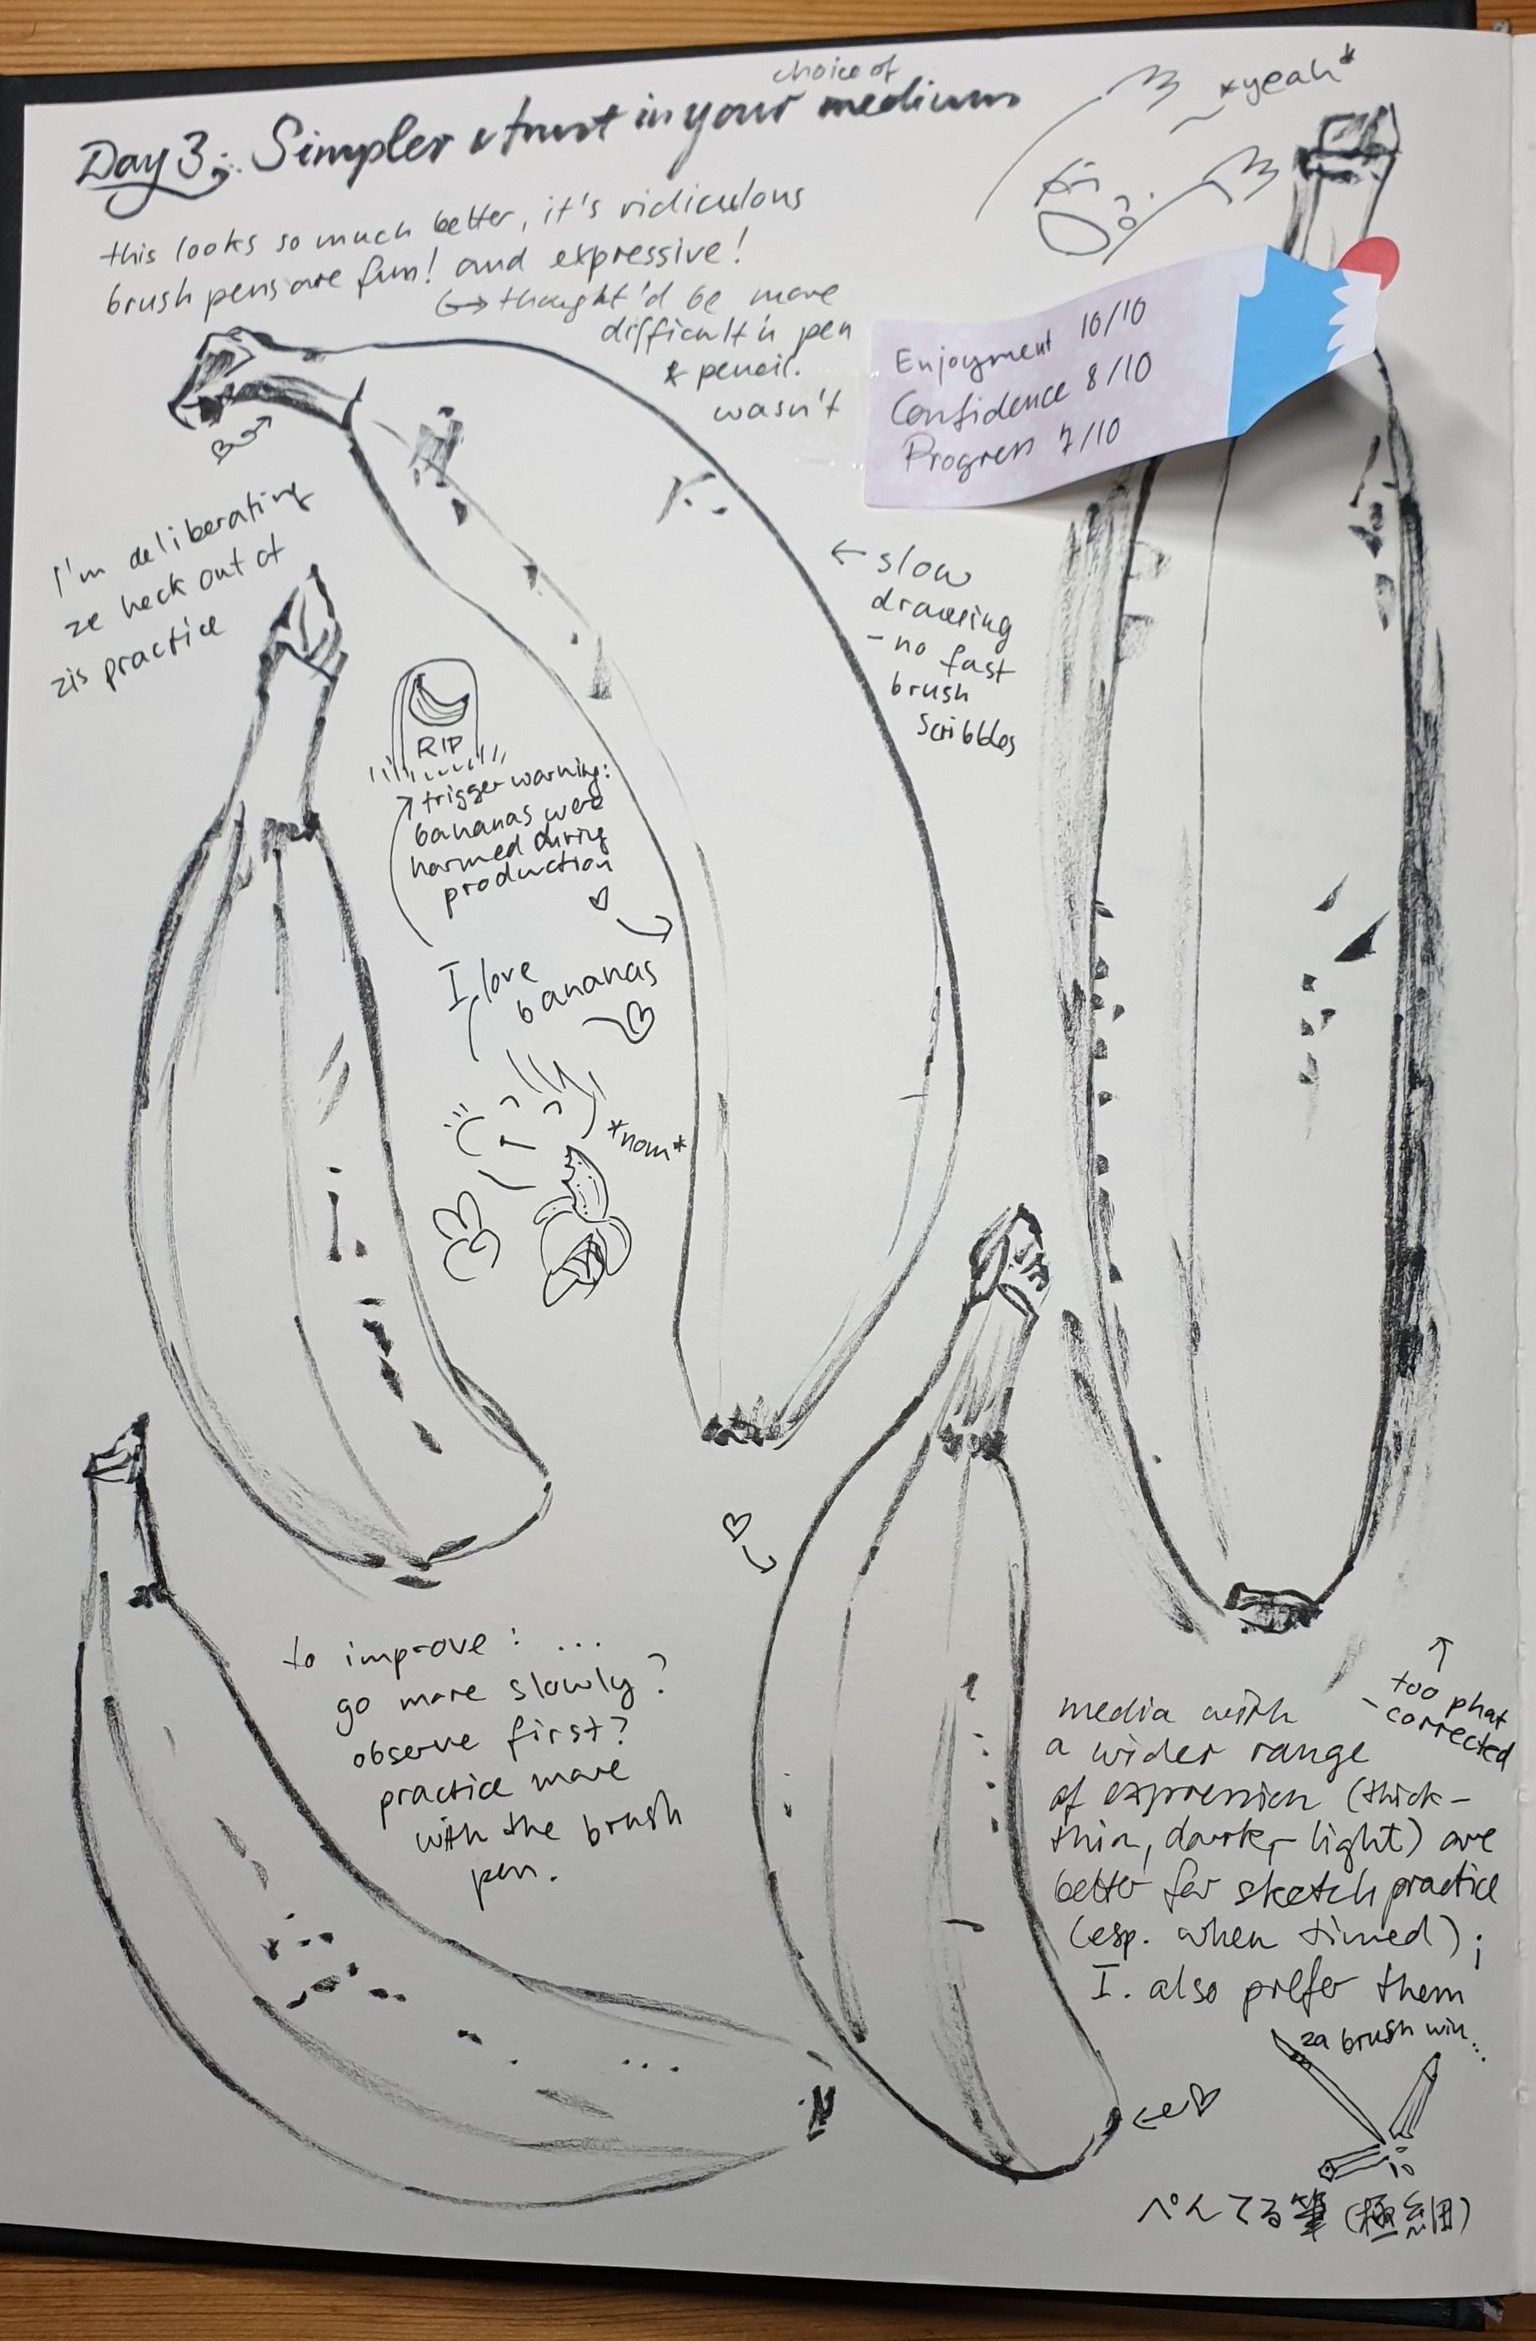 Day 3: Simpler & trust in your choice of medium
*yeah*
this looks so much better, it's ridiculous
brush pens are fun! and expressive!
↳ thought'd be more
difficult'n pen
& pencil.
wasn't
Enjoyment 10/10
Confidence 8/10
Progress 7/10
I'm deliberating
ze heck out of
zis practice
← slow
drawing
- no fast
brush
scribbles
RIP
trigger warning:
bananas were
harmed during
production
I love
bananas
*nom*
to improve: ...
go more slowly?
observe first?
practice more
with the brush
pen.
too phat
- corrected
media with
a wider range
of expression (thick-
thin, dark, light) are
better for sketch practice
(esp. when timed);
I. also prefer them
za brush win...
ぺんてる筆(極細)